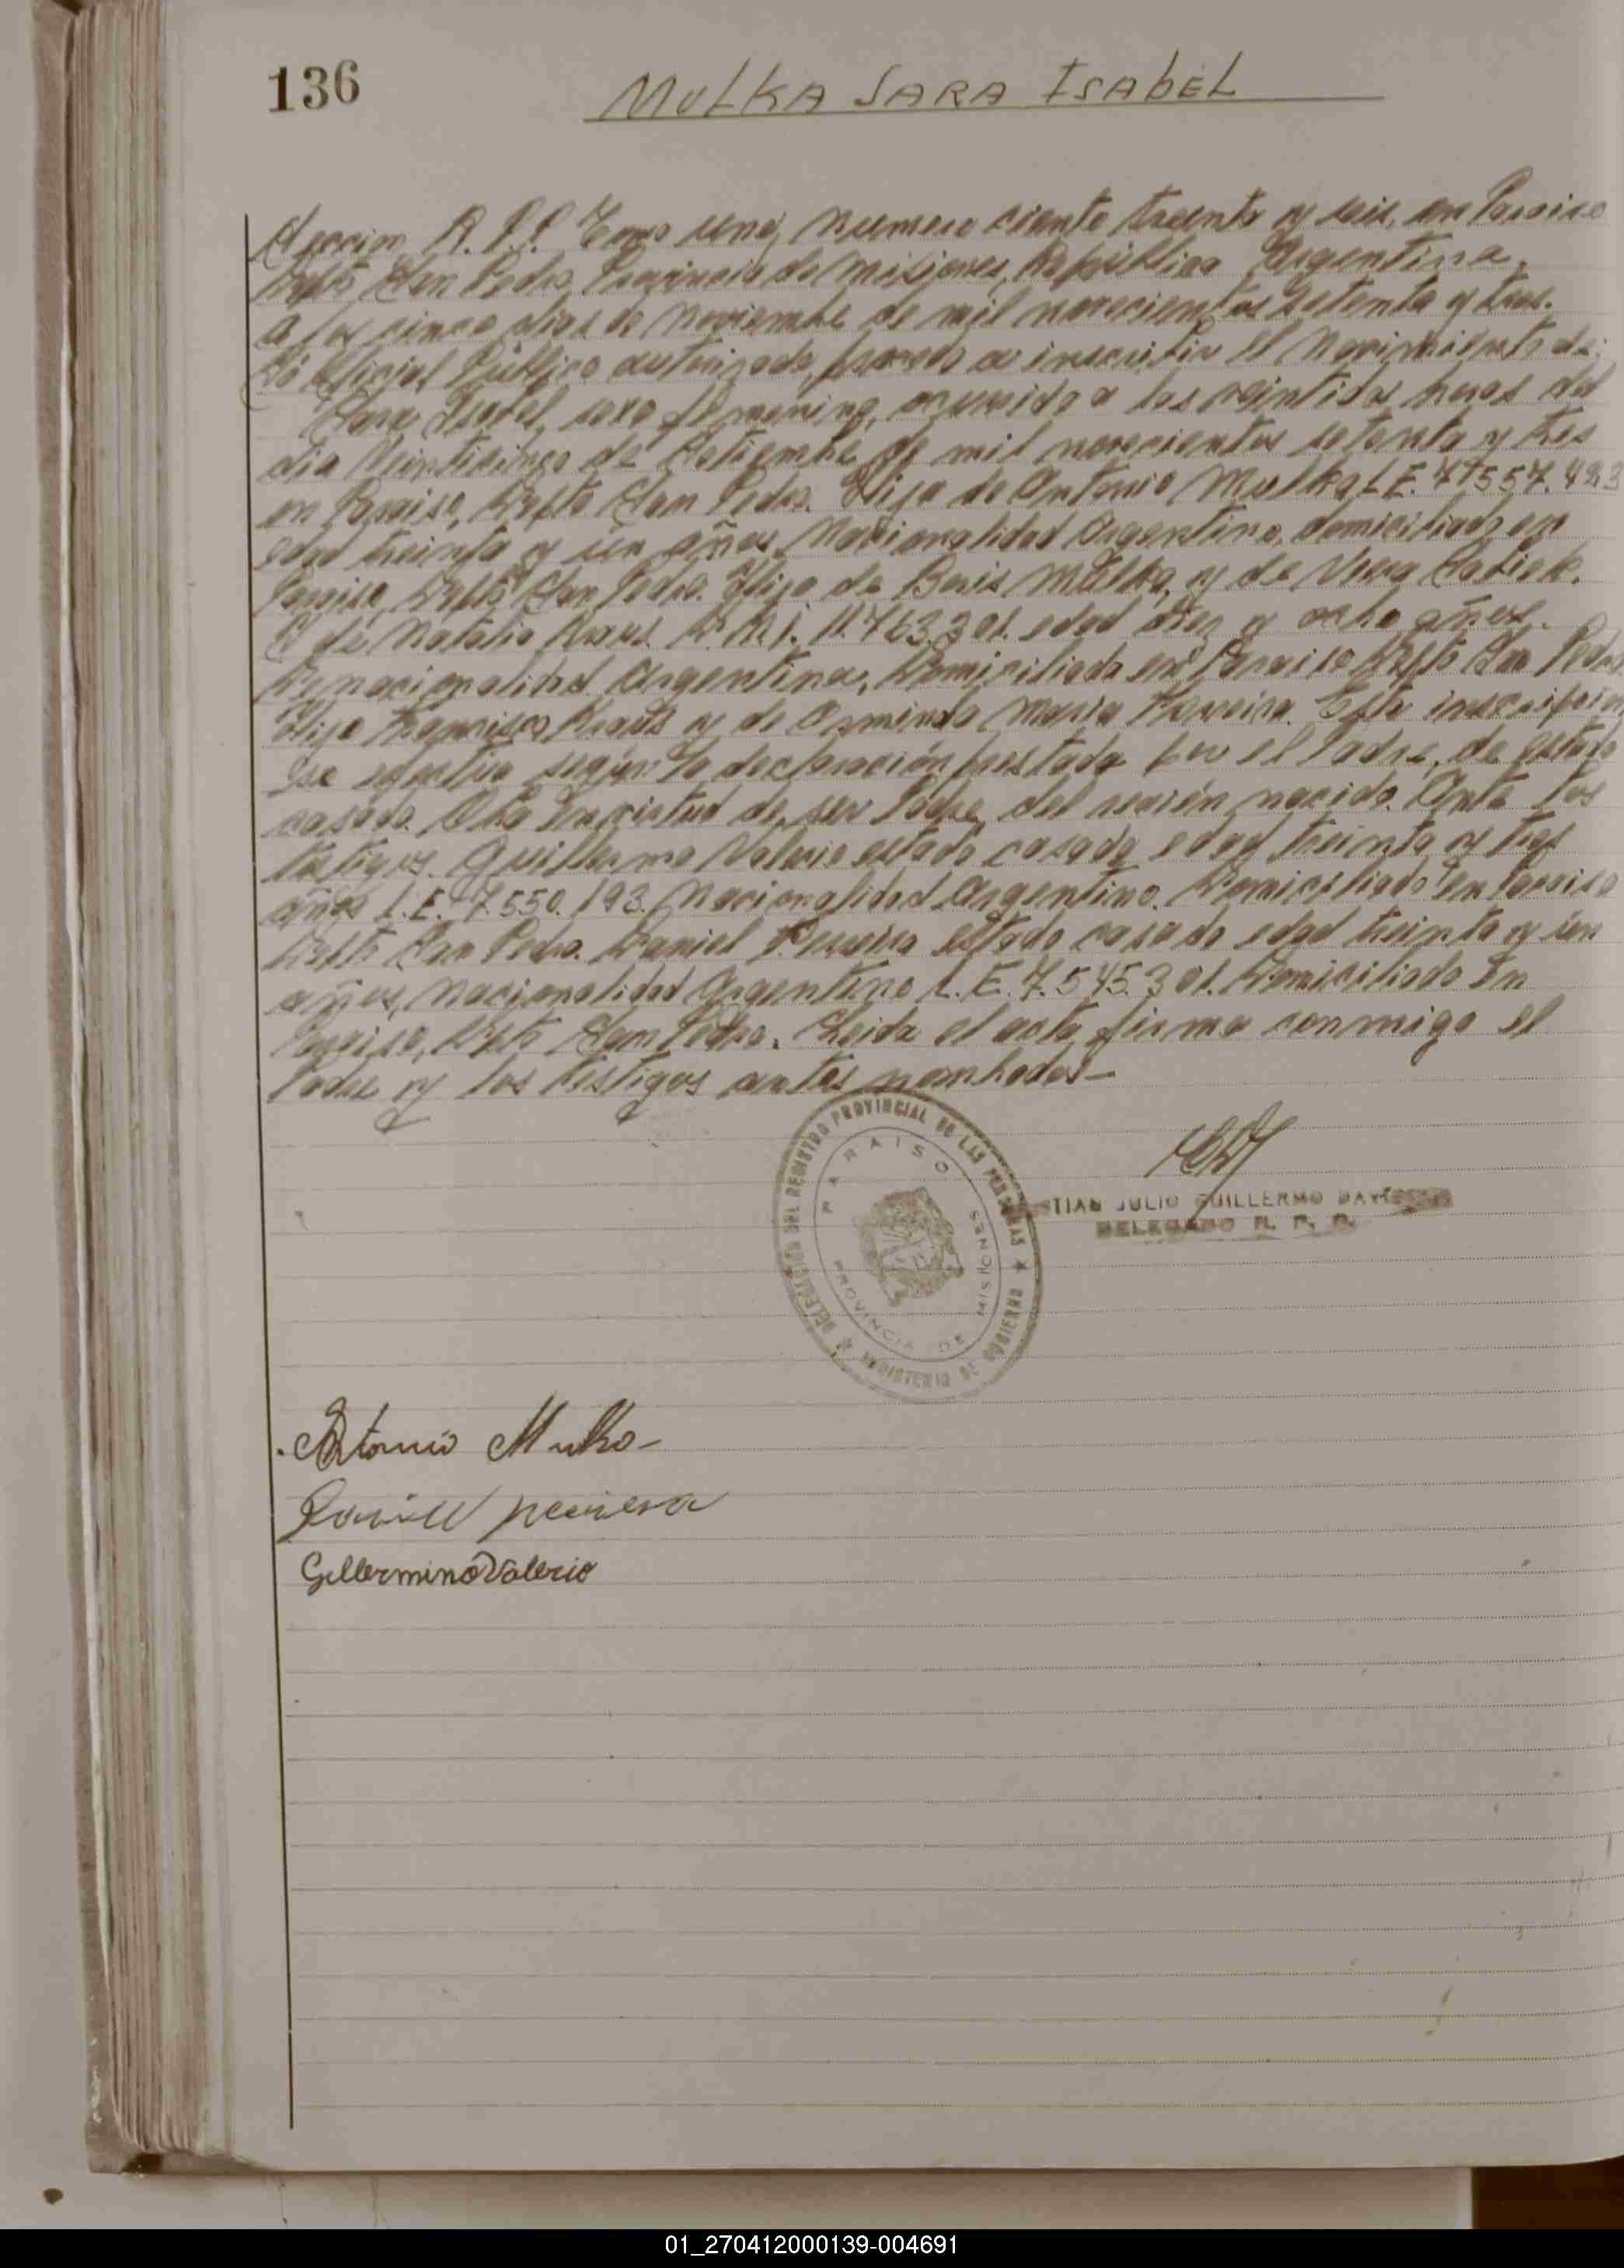 136
MULKA SARA ISABEL
Seccion R. P. P. Tomo uno, numero ciento treinta y seis, en Paraiso
Dpto San Pedro, Provincia de Misiones, Republica Argentina.
A los cinco dias de Noviembre de mil novecientos setenta y tres.
Yo Oficial Público autorizado, procedo a inscribir el Nacimiento de:
Sara Isabel, sexo femenino, ocurrido a las veintidos horas del
dia Veinticinco de Setiembre de mil novecientos setenta y tres
en Paraiso, Dpto San Pedro. Hija de Antonio Mulka L.E. 7.557.493
edad treinta y un años, Nacionalidad Argentino, domiciliado en
Paraiso, Dpto San Pedro. Hijo de Boris Mulka, y de Vera
Y de Natalia Kraus. D.N.I. 11.763.301. edad diez y ocho años.
De nacionalidad Argentina, Domiciliada en Paraiso Dpto San Pedro
Hija Francisco Kraus y de Osminda Maria Ferreira. Esta inscripcion
se efectua según la declaración prestada por el Padre, de estado
casado. En virtud de ser Padre del recién nacido. Ante los
testigos. Guillermo Valerio estado casado edad treinta y tres
años L.E. 7.550.193. Nacionalidad Argentino. Domiciliado en Paraiso
Dpto San Pedro. Daniel Pereira estado casado edad treinta y un
años, Nacionalidad Argentino L.E. 7.545.301. Domiciliado En
Paraiso, Dpto San Pedro. Leida el acta firma conmigo el
Padre y los testigos antes nombrados—
DELEGACION DEL REGISTRO PROVINCIAL DE LAS PERSONAS
PARAISO
PROVINCIA DE MISIONES
MINISTERIO DE GOBIERNO
STIAN JULIO GUILLERMO
DELEGADO R. P. P.
Antonio Mulka
Daniel pereira
Gellermino Valerio
01_270412000139-004691